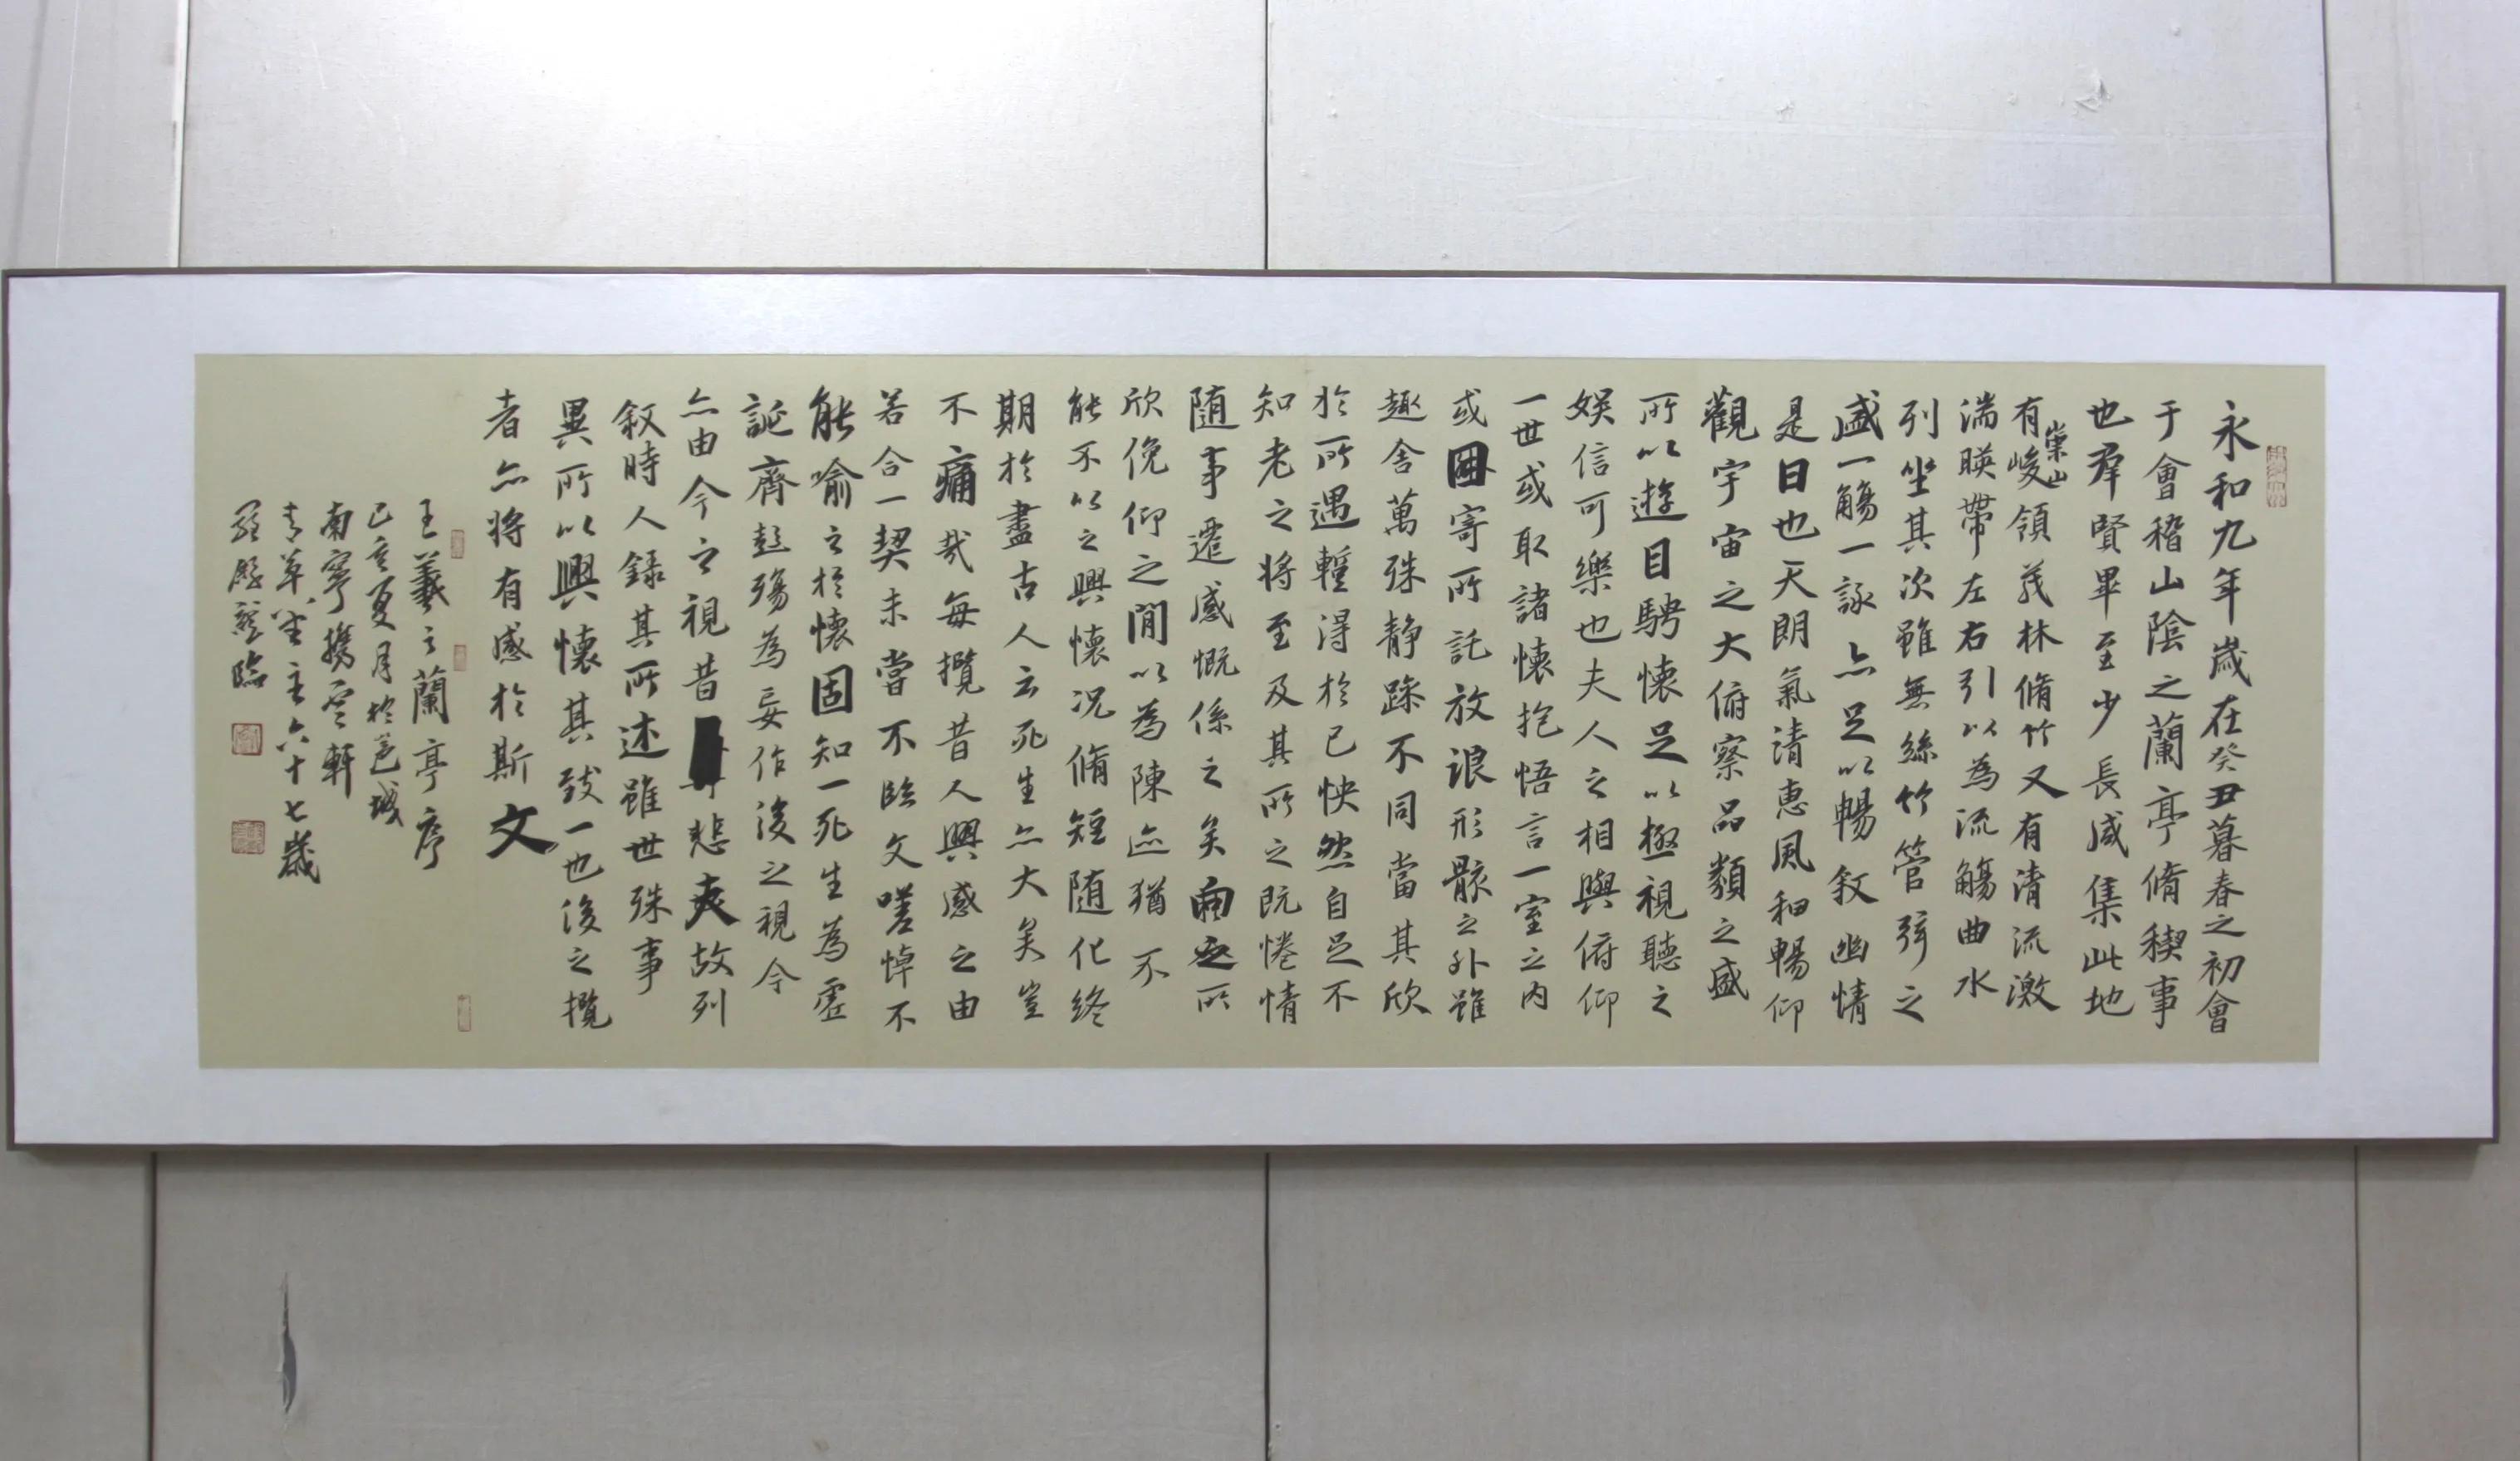 永和九年歲在癸丑暮春之初會
于會稽山陰之蘭亭脩稧事
也羣賢畢至少長咸集此地
有崇山峻領茂林脩竹又有清流激
湍暎帶左右引以為流觴曲水
列坐其次雖無絲竹管弦之
盛一觴一詠亦足以暢敘幽情
是日也天朗氣清惠風和暢仰
觀宇宙之大俯察品類之盛
所以遊目騁懷足以極視聽之
娛信可樂也夫人之相與俯仰
一世或取諸懷抱悟言一室之內
或因寄所託放浪形骸之外雖
趣舍萬殊静躁不同當其欣
於所遇蹔得於己怏然自足不
知老之將至及其所之既惓情
随事遷感慨係之矣向之所
欣俛仰之閒以為陳迹猶不
能不以之興懷況脩短随化終
期於盡古人云死生亦大矣豈
不痛哉每攬昔人興感之由
若合一契未嘗不臨文嗟悼不
能喻之於懷固知一死生為虛
誕齊彭殤為妄作後之視今
亦由今之視昔悲夫故列
敘時人錄其所述雖世殊事
異所以興懷其致一也後之攬
者亦將有感於斯文
王羲之蘭亭序
己亥夏月於邕城
南寧攜雲軒
青草堂主六十七歲
臨